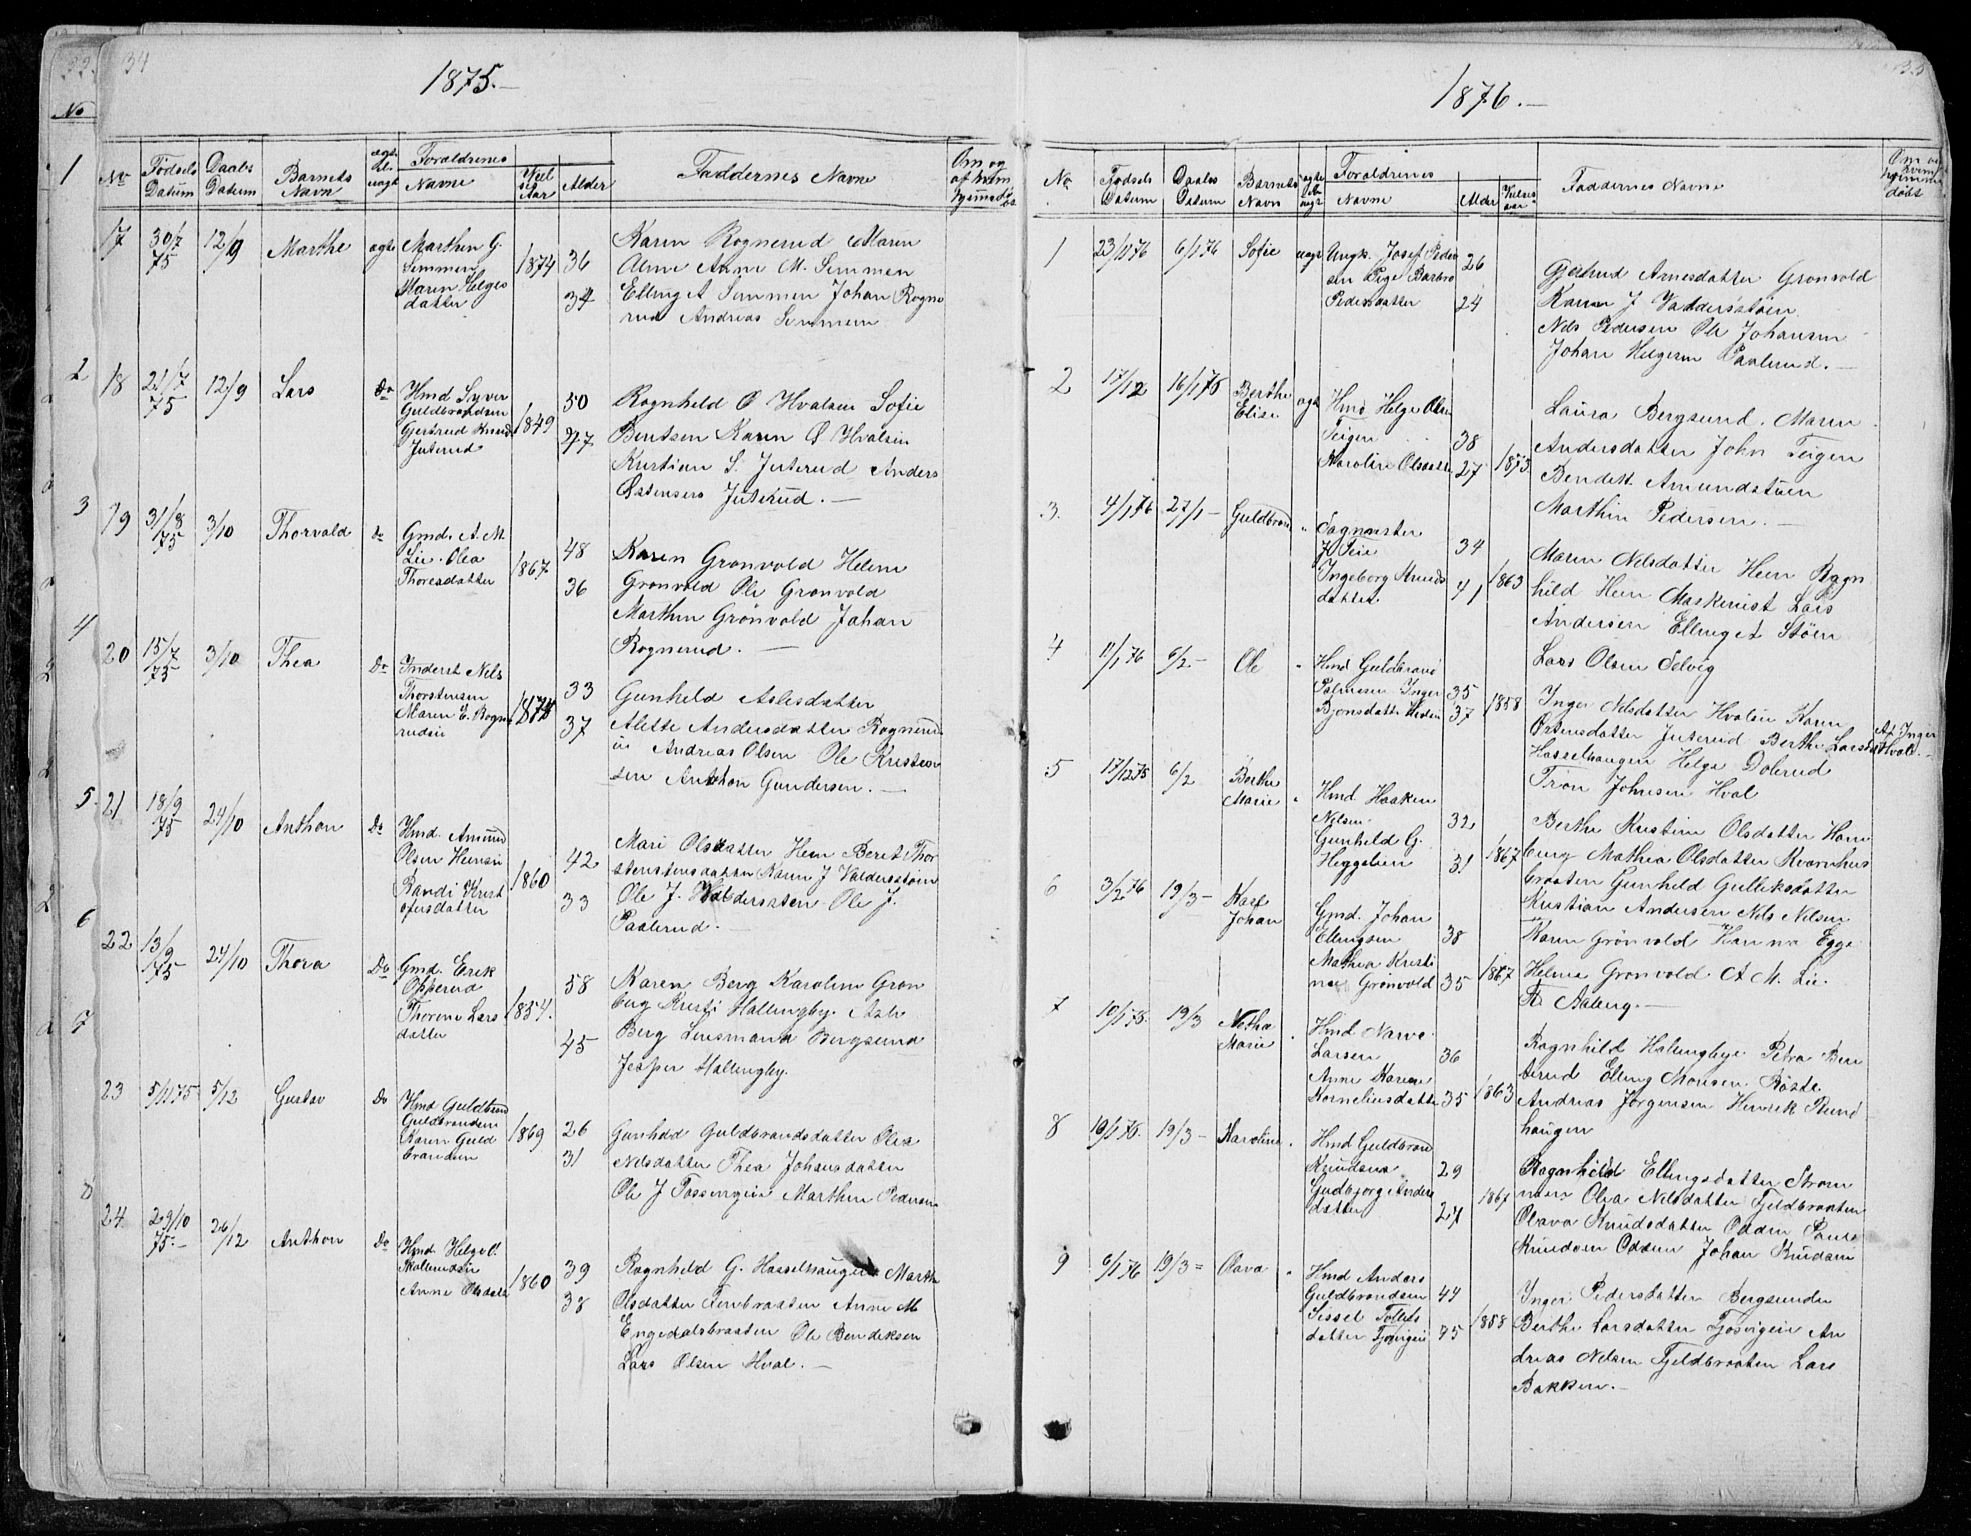 34
1875.-
No
Fødsels Datum
Daabs Datum
Barnets Navn
ægte el. uægt
Forældrenes
Navne
Viel Aar
Alder
Faddernes Navne
Om og af hvem hjemmedøbt
17 30/7 75 12/9 Marthe ægte
Marthin G.
Simmen
Maren Helges
datter
1874 36
34
Karen Rognerud Maren
Anne M. Simmen
Johan Rogne
rud Andreas Simmen
18 21/7 75 12/9 Lars Do
Hmd Syver
Guldbrandsen
Gjertrud Knuds
Juterud
1849 50
47
Ragnhild O Hvalsen Sofie
Bentsen Karen O Hvalsin
Kristian S. Juterud Anders
Østensen Juterud.-
19 31/8 75 3/10 Thorvald Do
Gmd. A. M
Lie Olea
Thoresdatter
1867 48
36
Karen Grønvold Helene
Grønvold Ole Grønvold
Marthin Grønvold Johan
Rognerud.-
20 15/7 75 3/10 Thea Do
Inderst Nils
Thorstensen
Maren E. Rogne
rudeie
1874 33
37
Gunhild Aslesdatter
Alette Andersdatter Rognerud
ei Andreas Olsen Ole Kristian
sen Anthon Gundersen.-
21 18/9 75 24/10 Anthon Do
Hmd. Amund
Olsen
Randi Krist
ofersdatter
1860 42
33
Mari Olsdatter Hem Berit Thor
stensdatter Karen J Valdersstøen
Ole J. Valdersstøen Ole J.
Paalerud.-
22 13/9 75 24/10 Thora Do
Gmd. Erik
Opperud
Thorene Lars
datter
1854. 58
45
Karen Berg Karoline Grøn
berg Kristi Hallingby. Asle
Berg Lensmand Bergsund
Jesper Hallingby.
23 5/11 75 5/12 Gustav Do
Hmd Guldbrand
Guldbrandsen
Karen Guld
brandsen
1869 26
31
Gunhild Guldbrandsdatter Olea
Nilsdatter Thea Johansdatter
Ole J Marthin Pedersen
24 29/10 75.- 26/12 Anthon Do
Hmd Helge O.
Skollerudeie
Anne Olsdatter
1860 39
38
Ragnhild G. Hasselhaugen Marthe
Olsdatter Anne M
Engedalsbraaten Ole Bendiksen
Lars Olsen Hval.-
35
1876.-
No.
Fødsels Datum
Daabs Datum
Barnets Navn
Forældrenes
Navne
Alder
Vielses aar
Faddernes Navne
Om og af hvem hjemmedøbt
1 23/11 76 6/1 76 Sofie uægt
Ungk. Josef Peder
sen Pige Barbro
Pedersdatter
26
24
Gjertrud Arnesdatter Grønvold
Karen J Valdersstøen
Nils Pedersen Ole Johansen
Johan Helgesen Paalerud.-
2 17/12 16/1 75 Berthe Elise ægt
Hmd Helge Olsen
Teigen
Karoline Olsdatter
38
27 1873
Laura Bergsund. Maren
Andersdatter John Teigen
Bendik Amundstøen
Marthin Pedersen.-
3. 4/1 76 27/1- Guldbrand "
Sagmester
J Teie
Ingeborg Knuds
datter
34
41 1863
Maren Nilsdatter Hem Ragn
hild Hem Maskinist Lars
Andersen Elling Støen
Lars Olsen Selvig
4 11/1 76 6/2- Ole "
Hmd Guldbrand
Palmesen Inger
Bjønsdatter
35
37 1858
Inger Nilsdatter Hvalsen Karen
Østensdatter Juterud Berthe Larsdatter
Hasselhaugen Helge Dolerud
Tron Johnsen Hval
Af Inger Hval.-
5 17/12 75 6/2 Berthe Marie "
Hmd Haaken
Nilsen
Gunhild G.
Heggelien
32
31 1867
Berthe Kristine Olsdatter Ham
berg Mathea Olsdatter Kværnhus
braaten Gunhild Gulliksdatter
Kristian Andersen Nils Nilsen
6 3/2 76 19/3- Karl Johan
Gmd. Johan
Ellingsen
Mathea Kristi
ne Grønvold
38
35 1867
Karen Grønvold Hanna Egge
Helene Grønvold A M. Lie.
Fr. Aaberg.-
7 10/1 75. 19/3 Nethe Marie "
Hmd Narve
Larsen
Anne Karine
Korneliusdatter
36
35 1863
Ragnhild Hallingbye Petra Ben
terud Elling Monsen Røste
Andreas Jørgensen Henrik Rund
haugen
8 19/1 75. 19/3- Karoline "
Hmd Guldbrand
Knudsen
Gudbjørg Anders
datter
29
27 1867
Ragnhild Ellingsdatter Strøm
men Olea Nilsdatter Fjeldbraaten
Olava Knudsdatter Odden Paul
Knudsen Odden Johan Knudsen
9 6/1 76 19/3= Olava "
Hmd Anders
Guldbrandsen
Sissel Tollefs
datter Tjosvigeie
44
45 1858
Inger Pedersdatter Bergsundeie
Berthe Larsdatter Tjosvigeie An
dreas Nilsen Fjeldbraaten Lars
Bakken.-